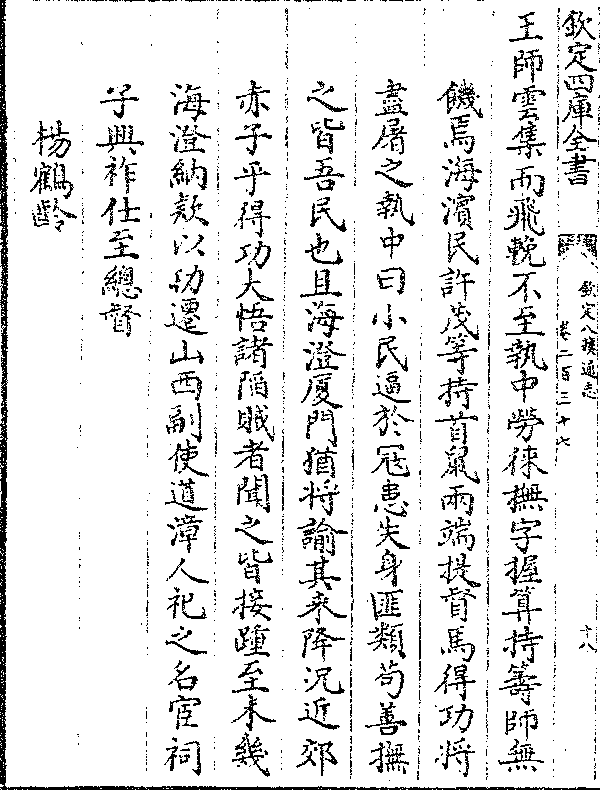 欽定四庫全書
欽定八旗通志
卷二百三十七
十八
王師雲集而飛輓不至執中勞徠撫字握算持籌師無
饑焉海濱民許茂等持首鼠兩端提督馬得功將
盡屠之執中曰小民逼於寇患失身匪類苟善撫
之皆吾民也且海澄厦門猶將諭其来降况近郊
赤子乎得功大悟諸陷賊者聞之皆接踵至未幾
海澄納欵以功遷山西副使道漳人祀之名宦祠
子興祚仕至總督
楊鶴齡